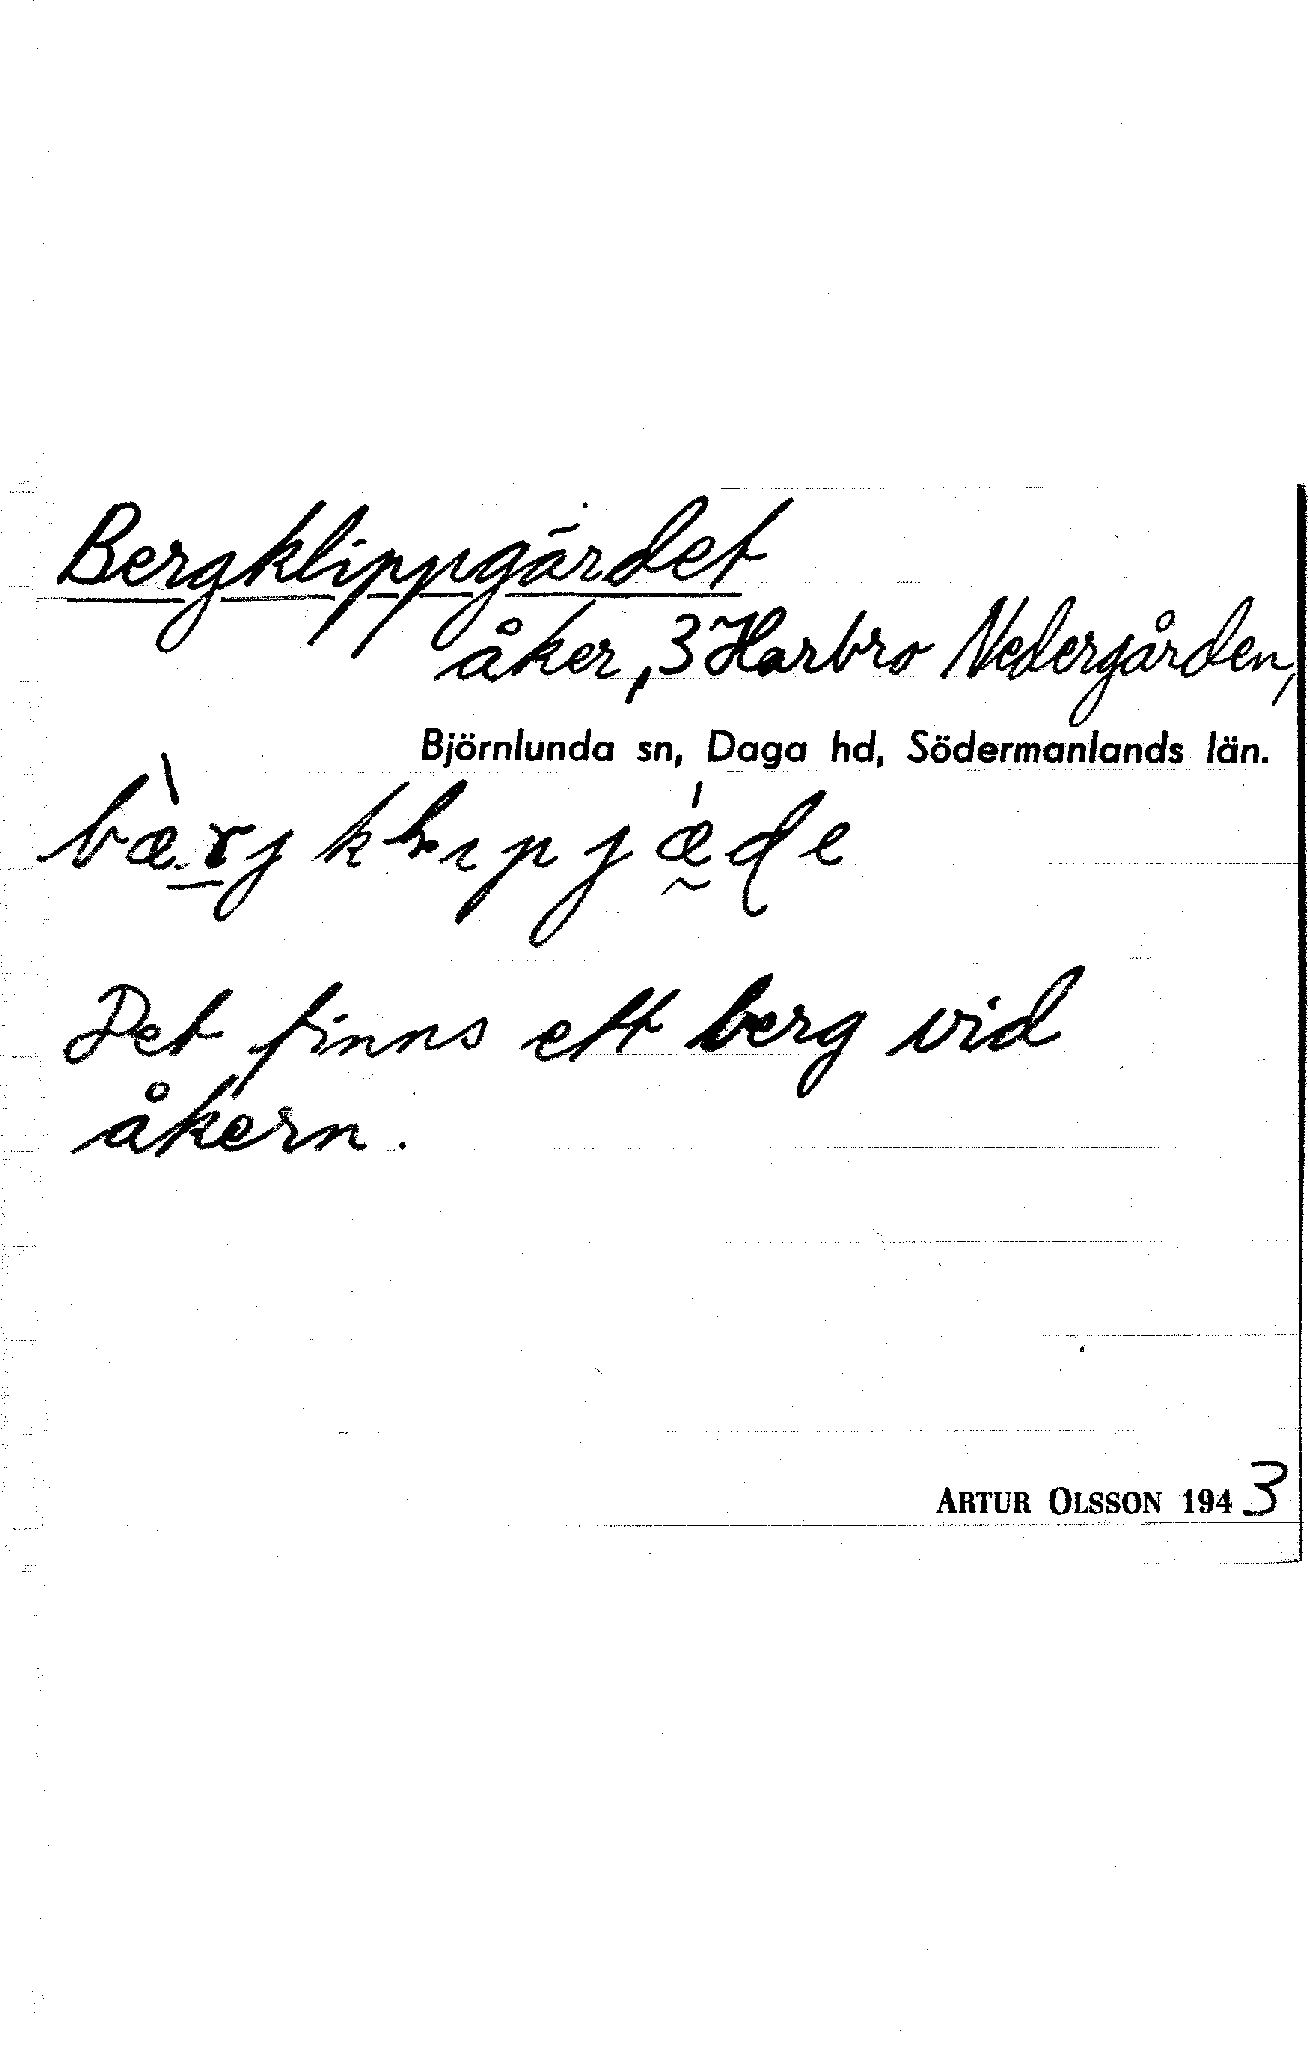 Bergklippgärdet
åker, 3 Harbro Nedergården,
Björnlunda sn, Daga hd, Södermanlands län.
Det finns ett berg vid
åkern.
ARTUR OLSSON 1943